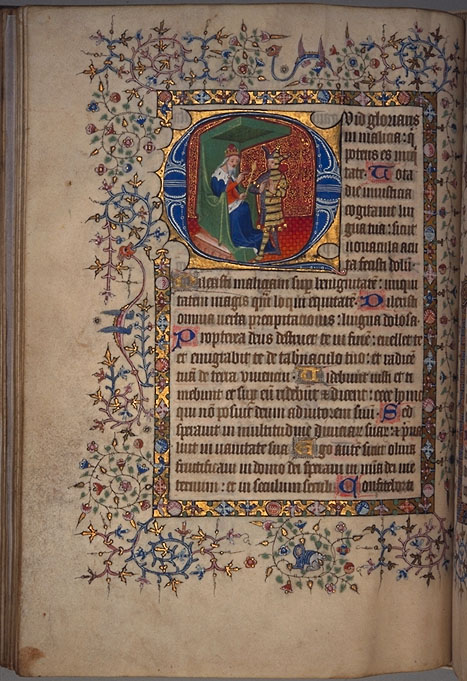 Quid gloriaris
in malicia: q
potens es iniq
tate. Tota
die iniusticia
cogitauit lin
gua tua: sicut
nouacula acu
ta fecisti dolū.
Dilexisti maliciam sup benignitatē: iniqui
tatem magis qm̄ loqui equitatē. Dilexisti
omnia uerba precipitationis: lingua dolosa.
Propterea deus destruet te in finē: euellet te
et emigrabit te de tabnaculo tuo: et radicē
tuā de terra uiuenciū. Uidebunt iusti et ti
mebunt et sup eū ridebūt et dicent: ecce homo
qui nō posuit deum adiutorem suū. Sed
sperauit in multitudine diuiciarū suarū: et preua
luit in uanitate sua. Ego autē sicut oliua
fructificaui in domo dei speraui in mīa dei in e
ternum: et in seculum seculi. Confitebor ti